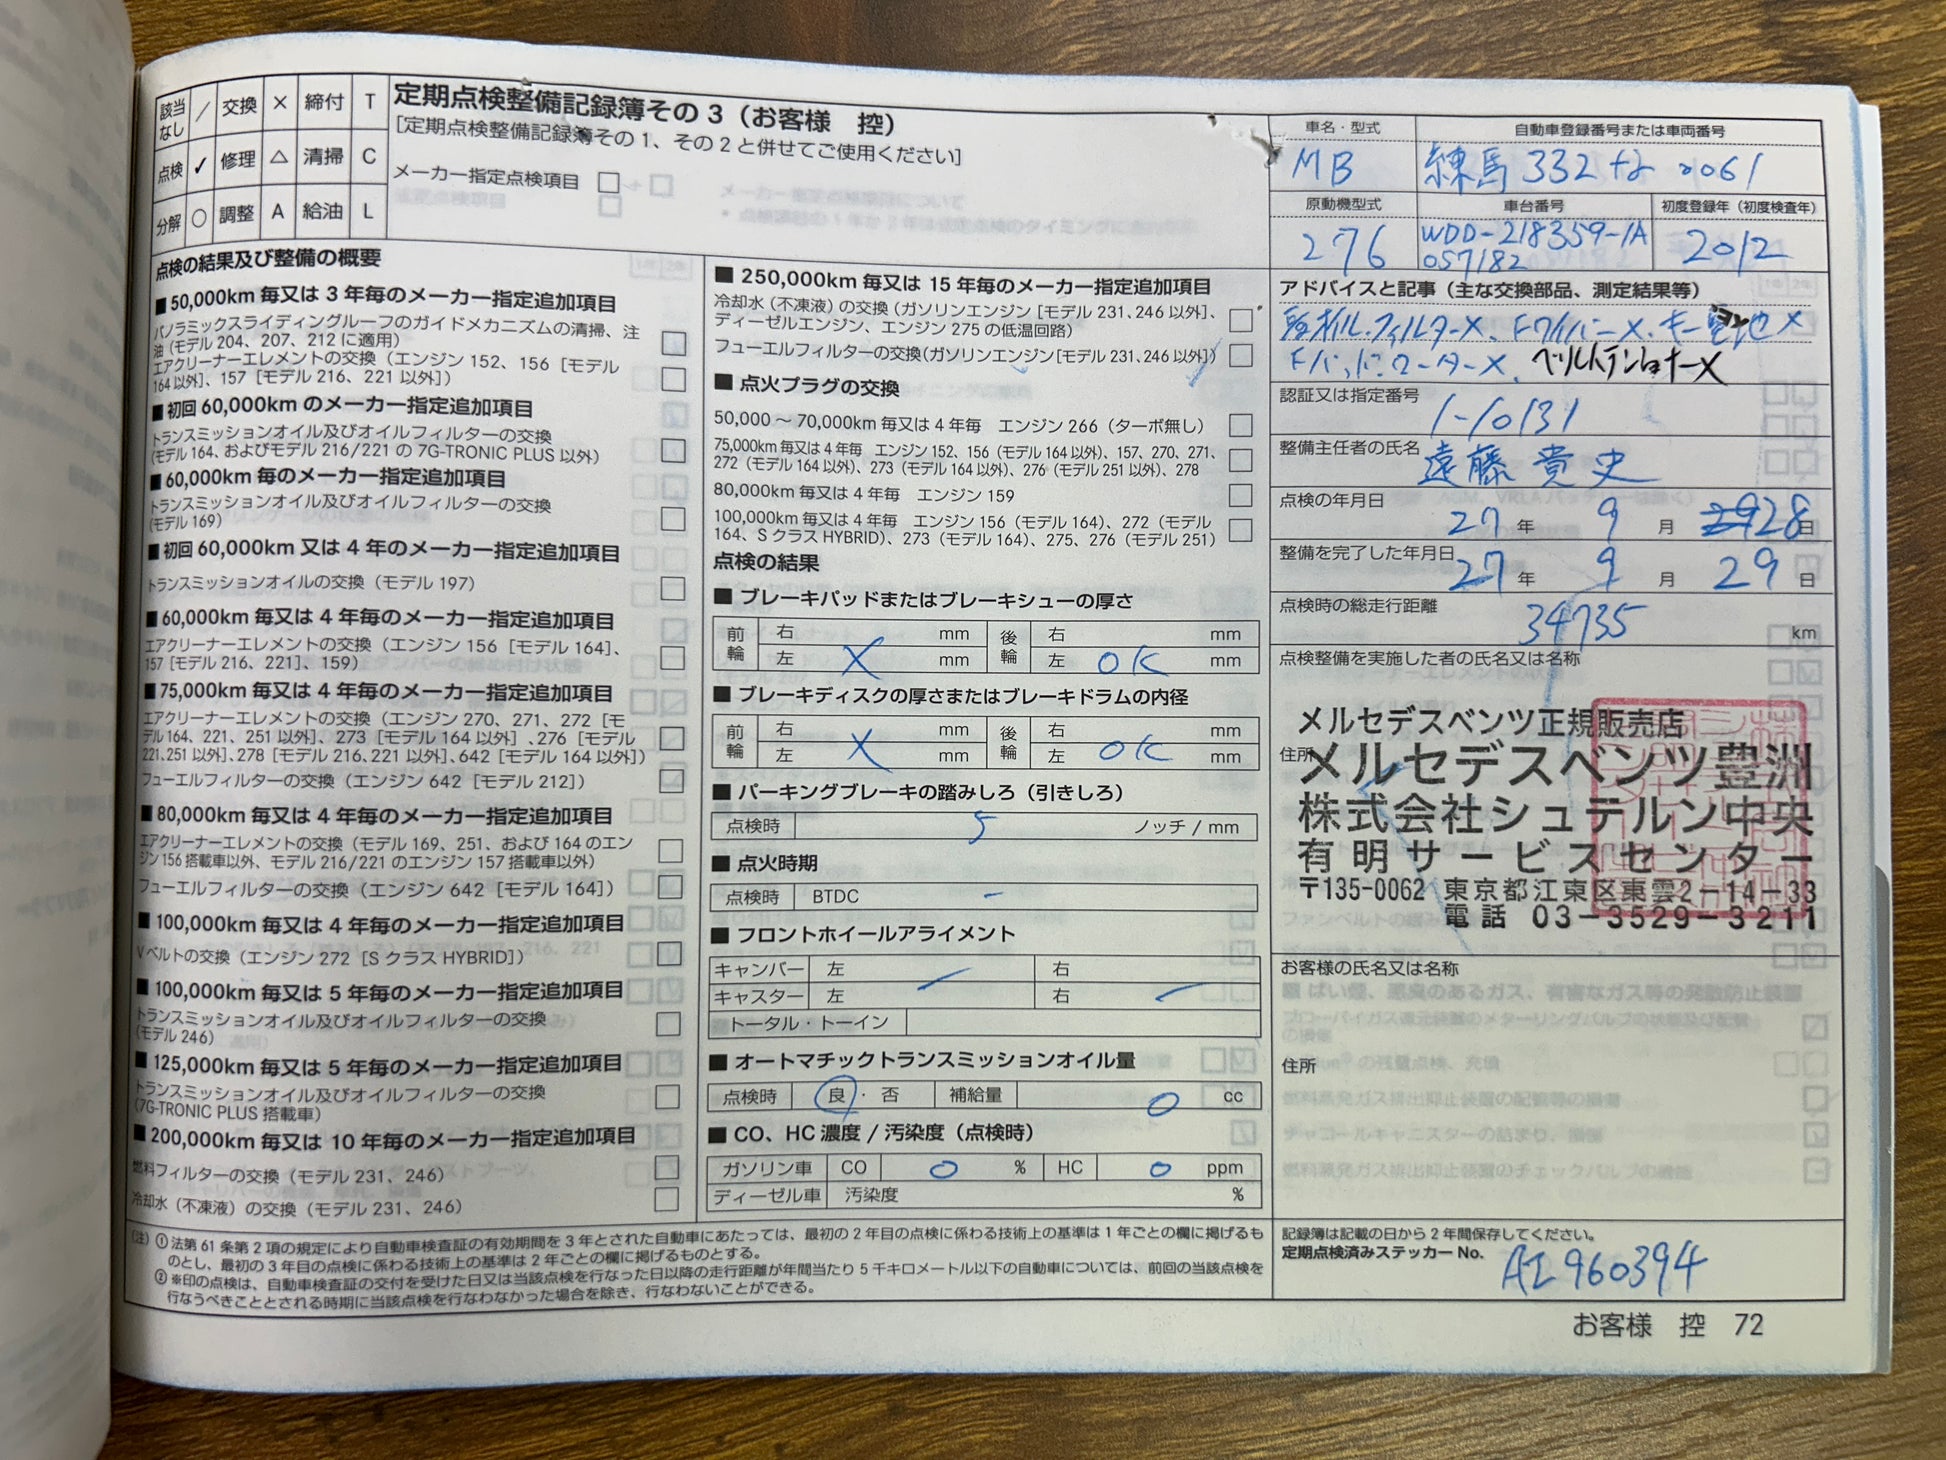 該当なし ／ 交換 × 締付 T
点検 ✓ 修理 △ 清掃 C
分解 ○ 調整 A 給油 L
定期点検整備記録簿その3（お客様 控）
［定期点検整備記録簿その1、その2と併せてご使用ください］
メーカー指定点検項目 □
点検の結果及び整備の概要
■50,000km 毎又は 3 年毎のメーカー指定追加項目
パノラミックスライディングルーフのガイドメカニズムの清掃、注
油（モデル 204、207、212 に適用）
エアクリーナーエレメントの交換（エンジン 152、156［モデル
164 以外］、157［モデル 216、221 以外］）
■初回 60,000km のメーカー指定追加項目
トランスミッションオイル及びオイルフィルターの交換
（モデル 164、およびモデル 216/221 の 7G-TRONIC PLUS 以外）
■60,000km 毎のメーカー指定追加項目
トランスミッションオイル及びオイルフィルターの交換
（モデル 169）
■初回 60,000km 又は 4 年毎のメーカー指定追加項目
トランスミッションオイルの交換（モデル 197）
■60,000km 毎又は 4 年毎のメーカー指定追加項目
エアクリーナーエレメントの交換（エンジン 156［モデル 164］、
157［モデル 216、221］、159）
■75,000km 毎又は 4 年毎のメーカー指定追加項目
エアクリーナーエレメントの交換（エンジン 270、271、272［モ
デル 164、221、251 以外］、273［モデル 164 以外］、276［モデル
221、251 以外］、278［モデル 216、221 以外］、642［モデル 164 以外］）
フューエルフィルターの交換（エンジン 642［モデル 212］）
■80,000km 毎又は 4 年毎のメーカー指定追加項目
エアクリーナーエレメントの交換（モデル 169、251、および 164 のエン
ジン 156 搭載車以外、モデル 216/221 のエンジン 157 搭載車以外）
フューエルフィルターの交換（エンジン 642［モデル 164］）
■100,000km 毎又は 4 年毎のメーカー指定追加項目
V ベルトの交換（エンジン 272［S クラス HYBRID］）
■100,000km 毎又は 5 年毎のメーカー指定追加項目
トランスミッションオイル及びオイルフィルターの交換
（モデル 246）
■125,000km 毎又は 5 年毎のメーカー指定追加項目
トランスミッションオイル及びオイルフィルターの交換
（7G-TRONIC PLUS 搭載車）
■200,000km 毎又は 10 年毎のメーカー指定追加項目
燃料フィルターの交換（モデル 231、246）
冷却水（不凍液）の交換（モデル 231、246）
■250,000km 毎又は 15 年毎のメーカー指定追加項目
冷却水（不凍液）の交換（ガソリンエンジン［モデル 231、246 以外］、
ディーゼルエンジン、エンジン 275 の低温回路）
フューエルフィルターの交換（ガソリンエンジン［モデル 231、246 以外］）
■点火プラグの交換
50,000 ～ 70,000km 毎又は 4 年毎 エンジン 266（ターボ無し）
75,000km 毎又は 4 年毎 エンジン 152、156（モデル 164 以外）、157、270、271、
272（モデル 164 以外）、273（モデル 164 以外）、276（モデル 251 以外）、278
80,000km 毎又は 4 年毎 エンジン 159
100,000km 毎又は 4 年毎 エンジン 156（モデル 164）、272（モデル
164、S クラス HYBRID）、273（モデル 164）、275、276（モデル 251）
点検の結果
■ブレーキパッドまたはブレーキシューの厚さ
前輪 右 mm 後輪 右 mm
左 X mm 左 OK mm
■ブレーキディスクの厚さまたはブレーキドラムの内径
前輪 右 mm 後輪 右 mm
左 X mm 左 OK mm
■パーキングブレーキの踏みしろ（引きしろ）
点検時 5 ノッチ / mm
■点火時期
点検時 BTDC －
■フロントホイールアライメント
キャンバー 左 右
キャスター 左 右
トータル・トーイン
■オートマチックトランスミッションオイル量
点検時 良・否 補給量 0 cc
■CO、HC 濃度 / 汚染度（点検時）
ガソリン車 CO 0 % HC 0 ppm
ディーゼル車 汚染度 %
車名・型式 自動車登録番号または車両番号
MB 練馬 332 な 0061
原動機型式 車台番号 初度登録年（初度検査年）
276 WDD-218359-1A 2012
057182
アドバイスと記事（主な交換部品、測定結果等）
オイル.フィルターX、FワイパーX、キー電池X
Fパッド.ローターX、ベルトテンショナーX
認証又は指定番号
1-10131
整備主任者の氏名
遠藤 貴史
点検の年月日
27 年 9 月 28 日
整備を完了した年月日
27 年 9 月 29 日
点検時の総走行距離
34735 km
点検整備を実施した者の氏名又は名称
メルセデスベンツ正規販売店
住所
メルセデスベンツ豊洲
株式会社シュテルン中央
有明サービスセンター
〒135-0062 東京都江東区東雲2-14-33
電話 03-3529-3211
お客様の氏名又は名称
住所
記録簿は記載の日から 2 年間保存してください。
定期点検済みステッカー No. AI 960394
（注）①法第 61 条第 2 項の規定により自動車検査証の有効期間を 3 年とされた自動車にあたっては、最初の 2 年目の点検に係わる技術上の基準は 1 年ごとの欄に掲げるも
のとし、最初の 3 年目の点検に係わる技術上の基準は 2 年ごとの欄に掲げるものとする。
②※印の点検は、自動車検査証の交付を受けた日又は当該点検を行なった日以降の走行距離が年間当たり 5 千キロメートル以下の自動車については、前回の当該点検を
行なうべきこととされる時期に当該点検を行なわなかった場合を除き、行なわないことができる。
お客様 控 72